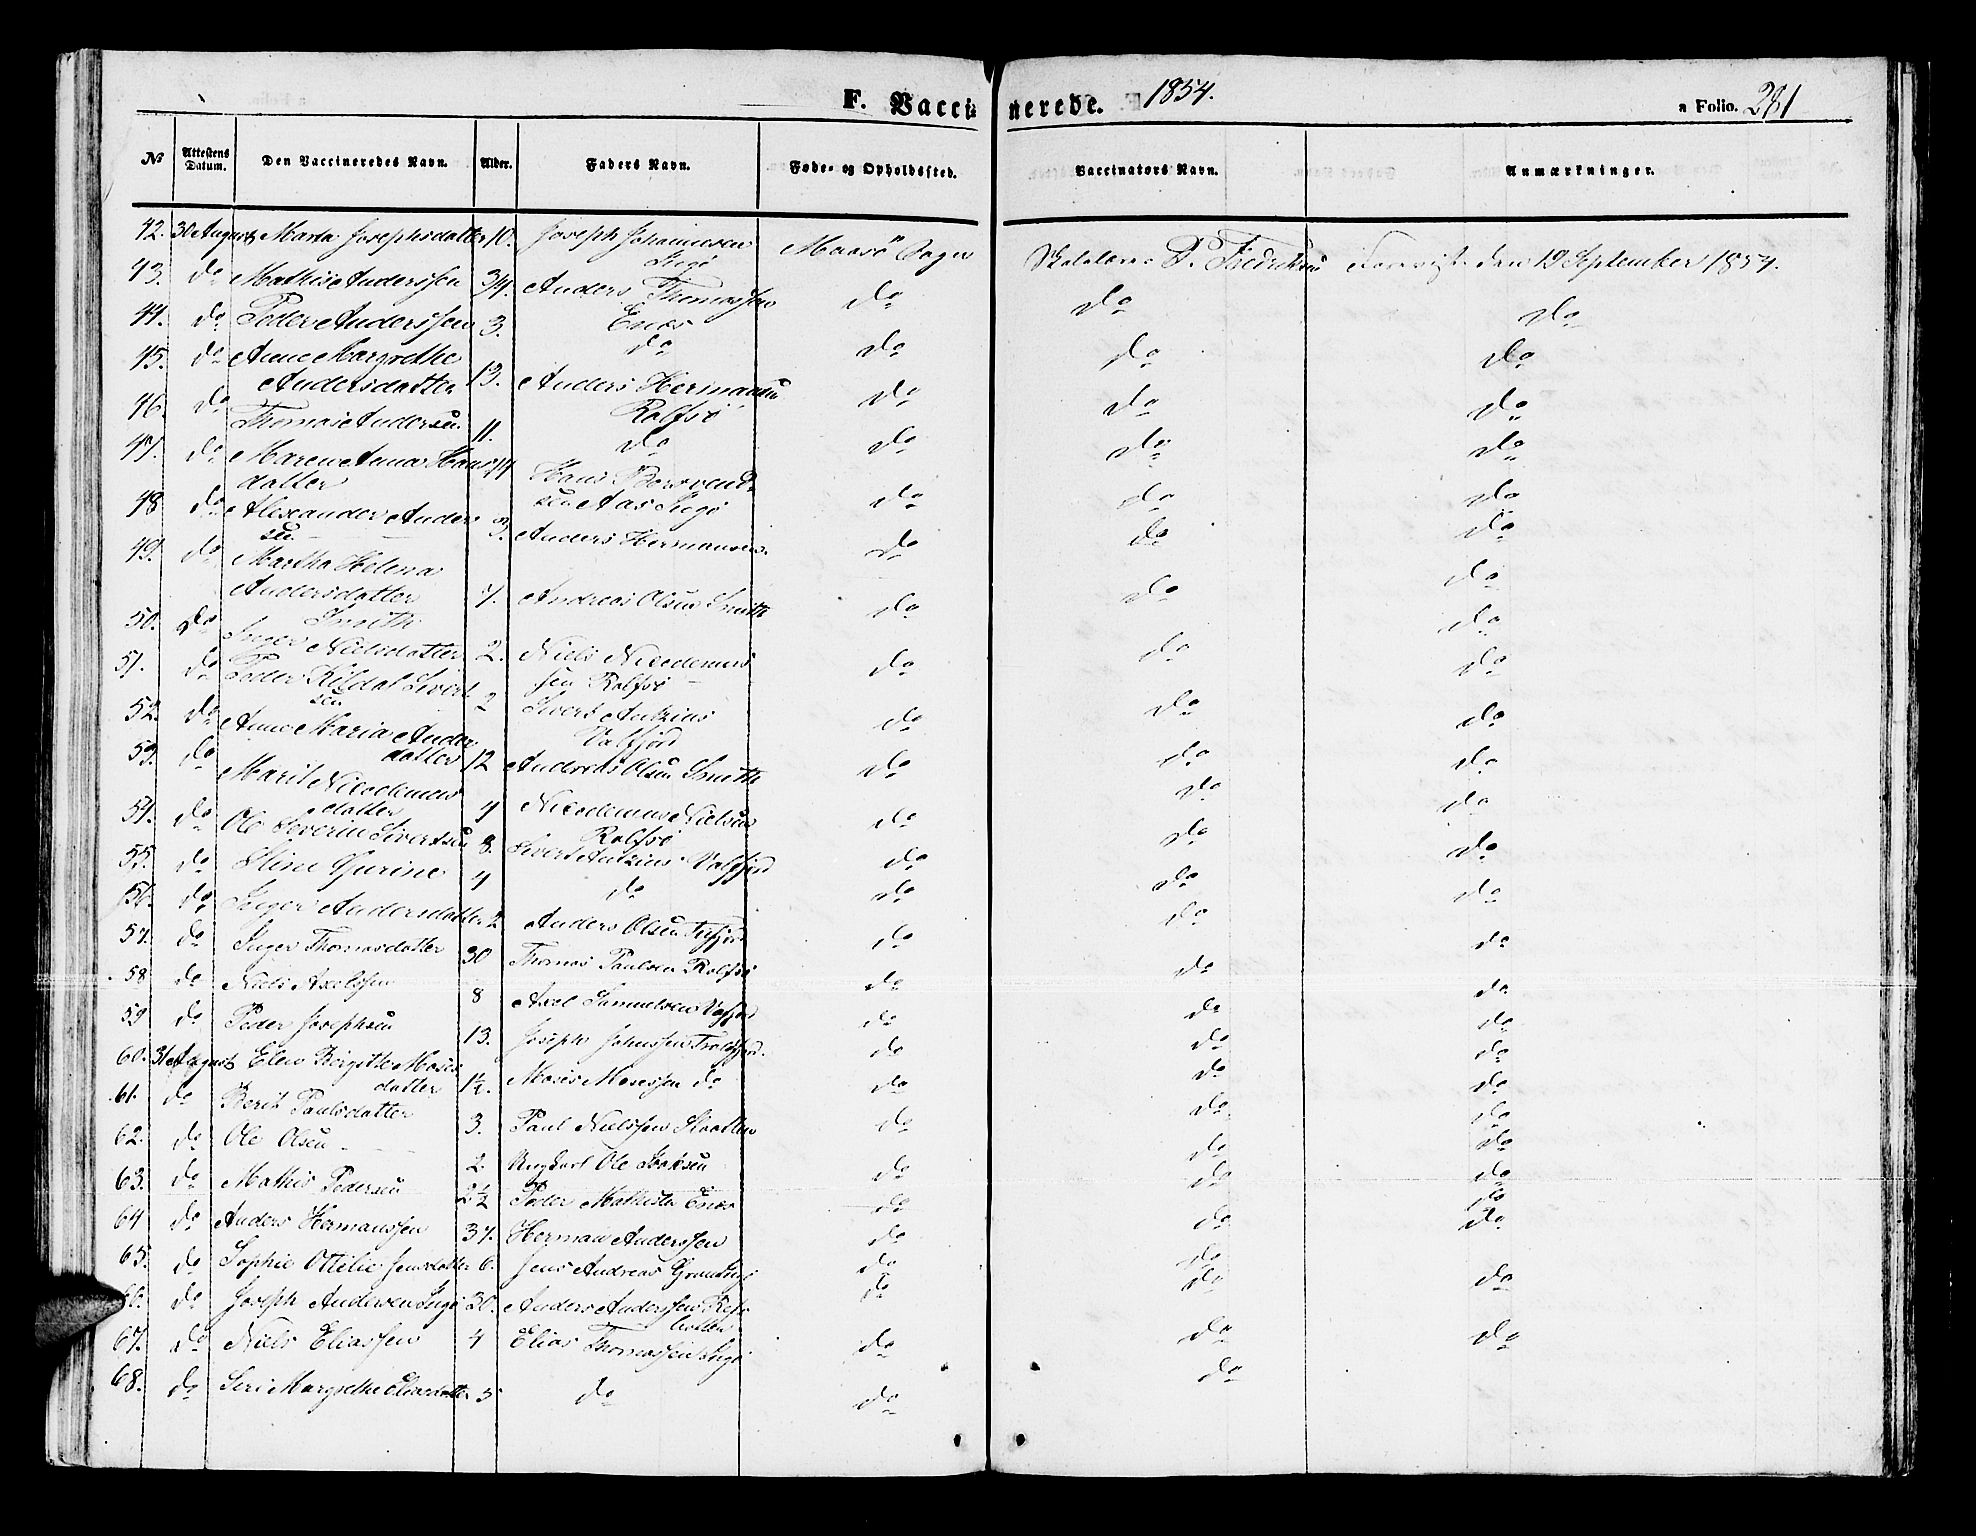 F. Vaccinerede. 1854. a Folio. 281
№ Attestens Datum. Den Vaccineredes Navn. Alder. Faders Navn. Føde- og Opholdssted. Vaccinators Navn. Anmærkninger.
42. 30 August Marta Josephsdatter 10. Joseph Johannesen Maasö Sogn Skolelærer P. Fredriksen Foreviist den 19 September 1854.
Ingö
43. do Mathis Anderssen 34. Anders Thomassen do do do
44. do Peder Anderssen 3. do do do do
45. do Anne Margrethe
Andersdatter 13. Anders Hermansen do do do
Rolfsö
46. do Thomas Andersen 11. do do do do
47. do Maren Anna Hans 14 Hans
datter sen Aas Ingö do do do
48 do Alexander Anders 3. Anders Hermansen do do do
sen
49. do Martha Helena
Andersdatter 7. Andreas Olsen Smith do do do
Smith
50. do Inger Nielsdatter 2. Niels Nicodemus do do do
sen Rolfsö
51. do Peder Kildal Sivert 2 Sivert do do do
sen
52. do Anne Maria Anders
datter 12 Andreas Olsen Smith do do do
53. do Marit Nicodemus
datter 4 Nicodemus Nielsen do do do
Rolfsö
54. do Ole Severin Sivertsen 8. Sivert do do do
55. do 4 do do do do
56. do Inger Andersdatter 2 Anders Olsen Tufjord do do do
57. do Inger Thomasdatter 30 Thomas Paulsen Rolfsö do do do
58 do Niels Axelssen 8 Axel Samuelsen do do do
59 do Peder Josephsen 13. Joseph Johnssen do do do
60. 31 August Elen Birgitte Moses
datter 1½. Moses Mosessen do do do do
61. do Berit Paulsdatter 3. Paul Nielssen do do do
62. do Ole Olsen 2. Ungkarl Ole Isaksen do do do
63. do Mathis Pedersen 2½ Peder do do do
64 do Anders Hermanssen 37. Herman Anderssen do do do
65. do Sophie Ottilie Jensdatter 6. Jens Andreas do do do
66. do Joseph Andersen Ingö 30. Anders Anderssen do do do
67. do Niels Eliassen 4 Elias Thomassen Ingö do do do
68. do Siri Margrethe Eliasdatter 5 do do do